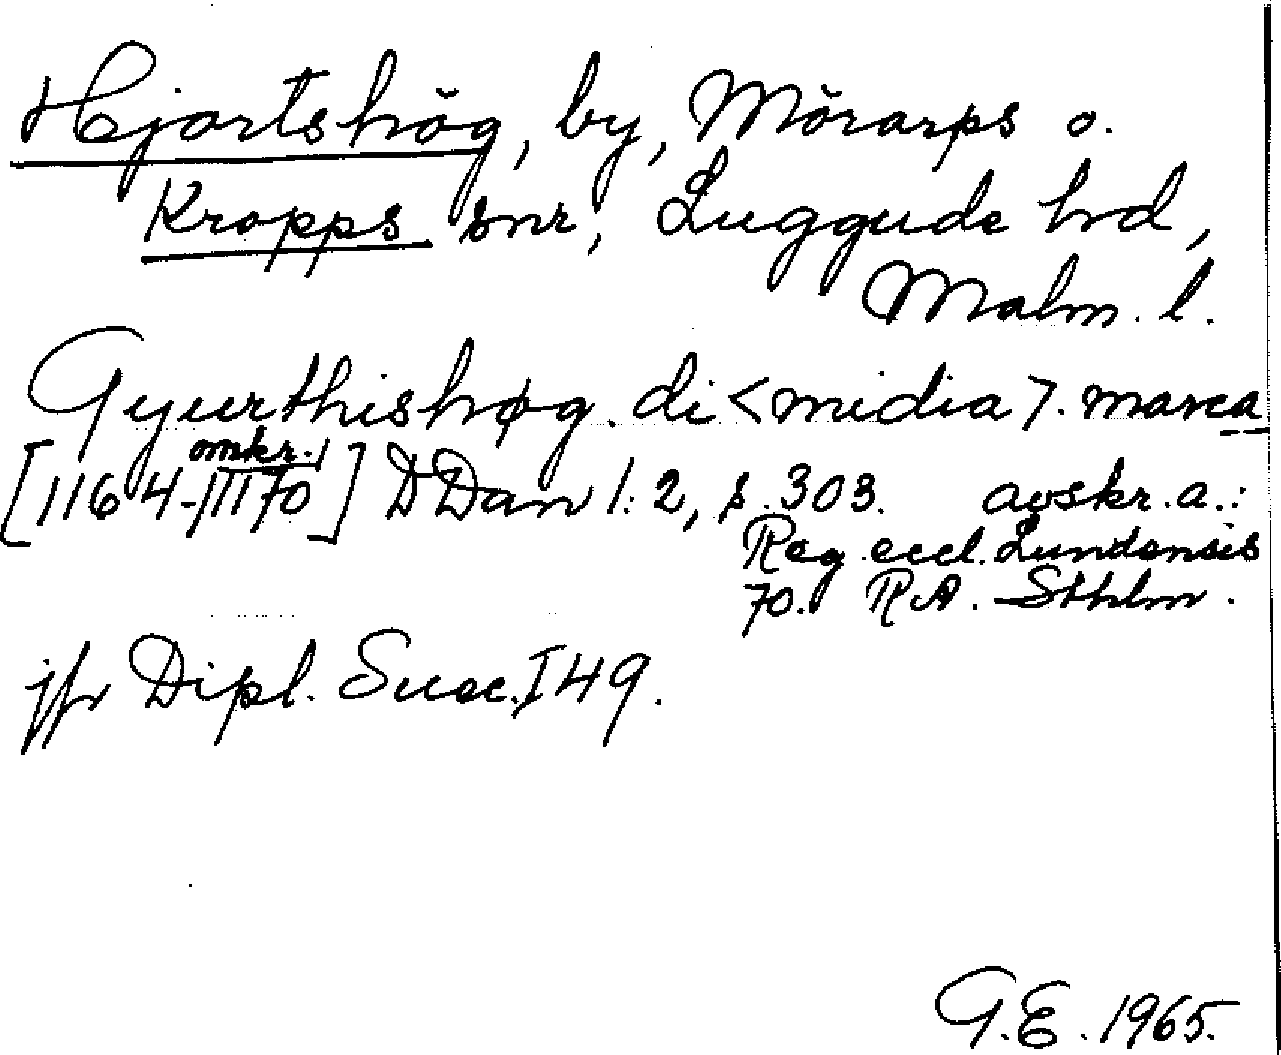 Hjortshög, by, Mörarps o.
Kropps snr, Luggude hd,
Malm. l.
Gyurthishøg. di<midia>. marca
[1164-omkr. 1170] DDan 1:2, s. 303. avskr. a.:
Reg. eccl. Lundensis
70. RA. Sthlm.
jfr Dipl. Suec. I 49.
G.E. 1965.